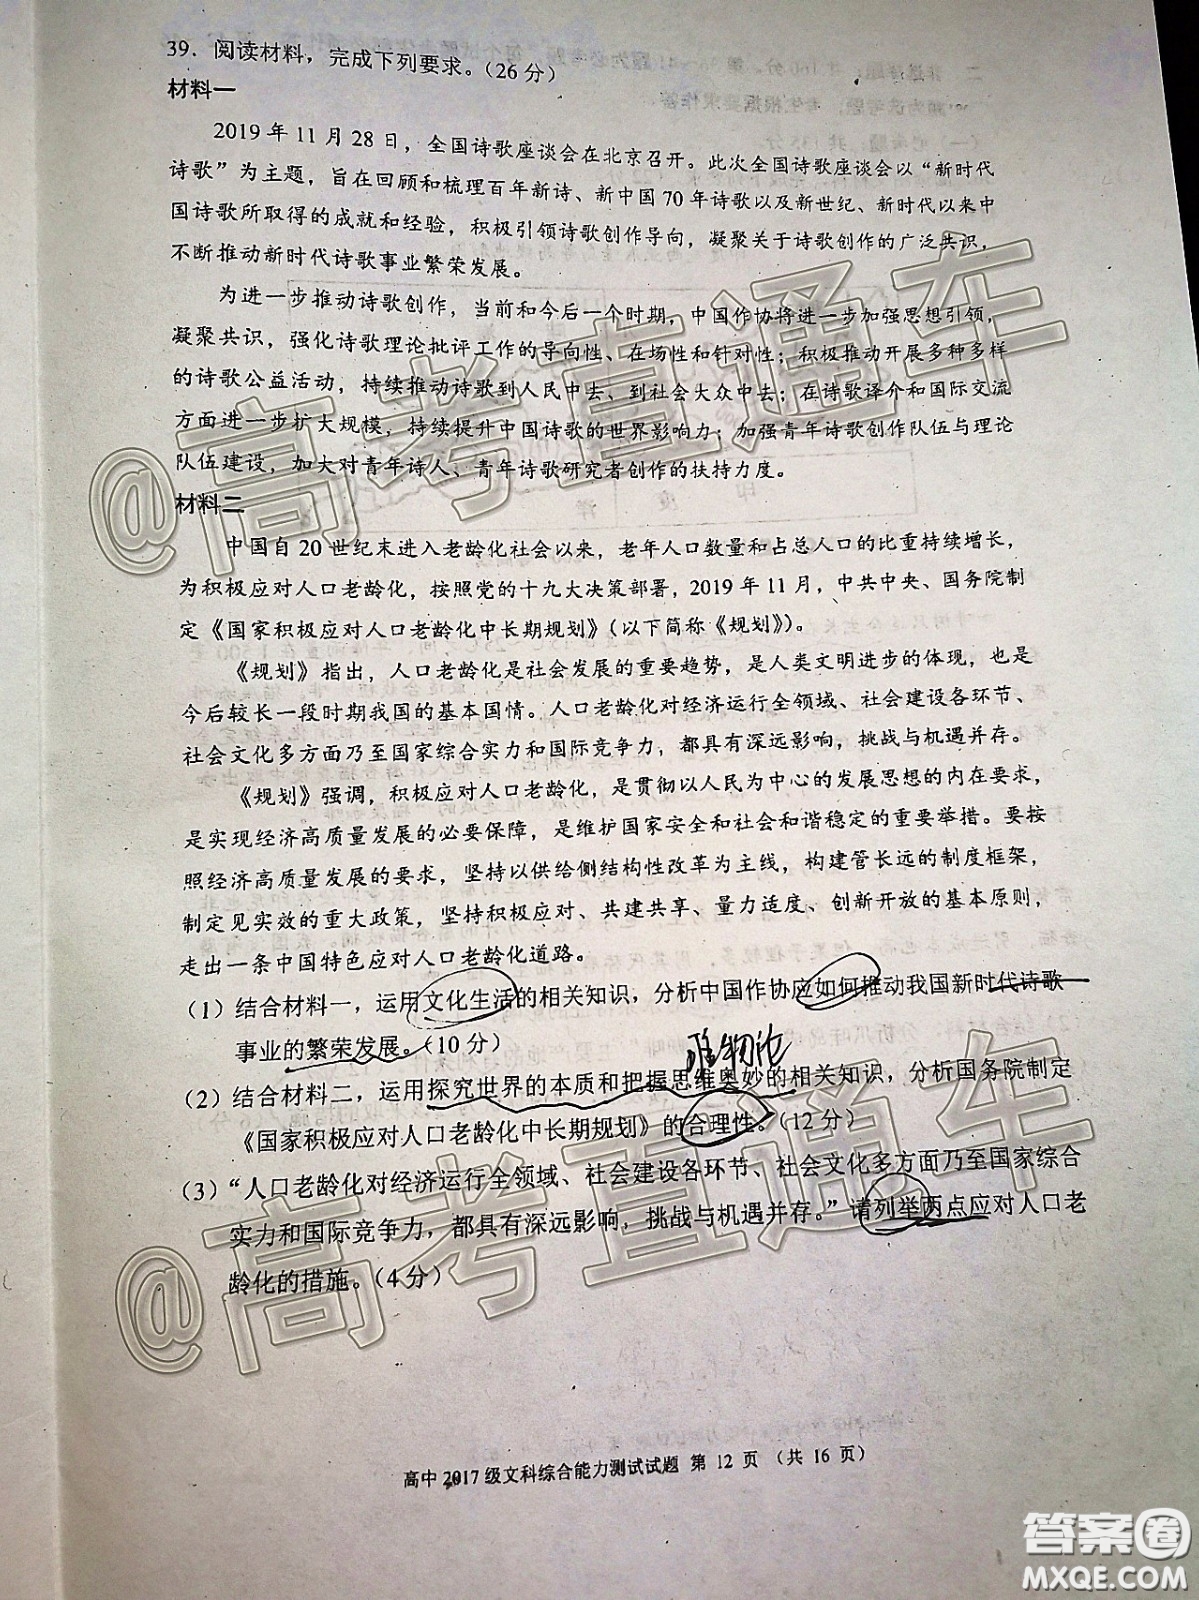 39．阅读材料，完成下列要求。（26分）
材料一
2019年11月28日，全国诗歌座谈会在北京召开。此次全国诗歌座谈会以“新时代
诗歌”为主题，旨在回顾和梳理百年新诗、新中国70年诗歌以及新世纪、新时代以来中
国诗歌所取得的成就和经验，积极引领诗歌创作导向，凝聚关于诗歌创作的广泛共识，
不断推动新时代诗歌事业繁荣发展。
为进一步推动诗歌创作，当前和今后一个时期，中国作协将进一步加强思想引领，
凝聚共识，强化诗歌理论批评工作的导向性、在场性和针对性；积极推动开展多种多样
的诗歌公益活动，持续推动诗歌到人民中去、到社会大众中去；在诗歌译介和国际交流
方面进一步扩大规模，持续提升中国诗歌的世界影响力；加强青年诗歌创作队伍与理论
队伍建设，加大对青年诗人、青年诗歌研究者创作的扶持力度。
材料二
中国自20世纪末进入老龄化社会以来，老年人口数量和占总人口的比重持续增长，
为积极应对人口老龄化，按照党的十九大决策部署，2019年11月，中共中央、国务院制
定《国家积极应对人口老龄化中长期规划》（以下简称《规划》）。
《规划》指出，人口老龄化是社会发展的重要趋势，是人类文明进步的体现，也是
今后较长一段时期我国的基本国情。人口老龄化对经济运行全领域、社会建设各环节、
社会文化多方面乃至国家综合实力和国际竞争力，都具有深远影响，挑战与机遇并存。
《规划》强调，积极应对人口老龄化，是贯彻以人民为中心的发展思想的内在要求，
是实现经济高质量发展的必要保障，是维护国家安全和社会和谐稳定的重要举措。要按
照经济高质量发展的要求，坚持以供给侧结构性改革为主线，构建管长远的制度框架，
制定见实效的重大政策，坚持积极应对、共建共享、量力适度、创新开放的基本原则，
走出一条中国特色应对人口老龄化道路。
（1）结合材料一，运用文化生活的相关知识，分析中国作协应如何推动我国新时代诗歌
事业的繁荣发展。（10分）
唯物论
（2）结合材料二，运用探究世界的本质和把握思维奥妙的相关知识，分析国务院制定
《国家积极应对人口老龄化中长期规划》的合理性。（12分）
（3）“人口老龄化对经济运行全领域、社会建设各环节、社会文化多方面乃至国家综合
实力和国际竞争力，都具有深远影响，挑战与机遇并存。”请列举两点应对人口老
龄化的措施。（4分）
高中2017级文科综合能力测试试题 第12页 （共16页）
@高考直通车
@高考直通车
答案圈
MXQE.COM